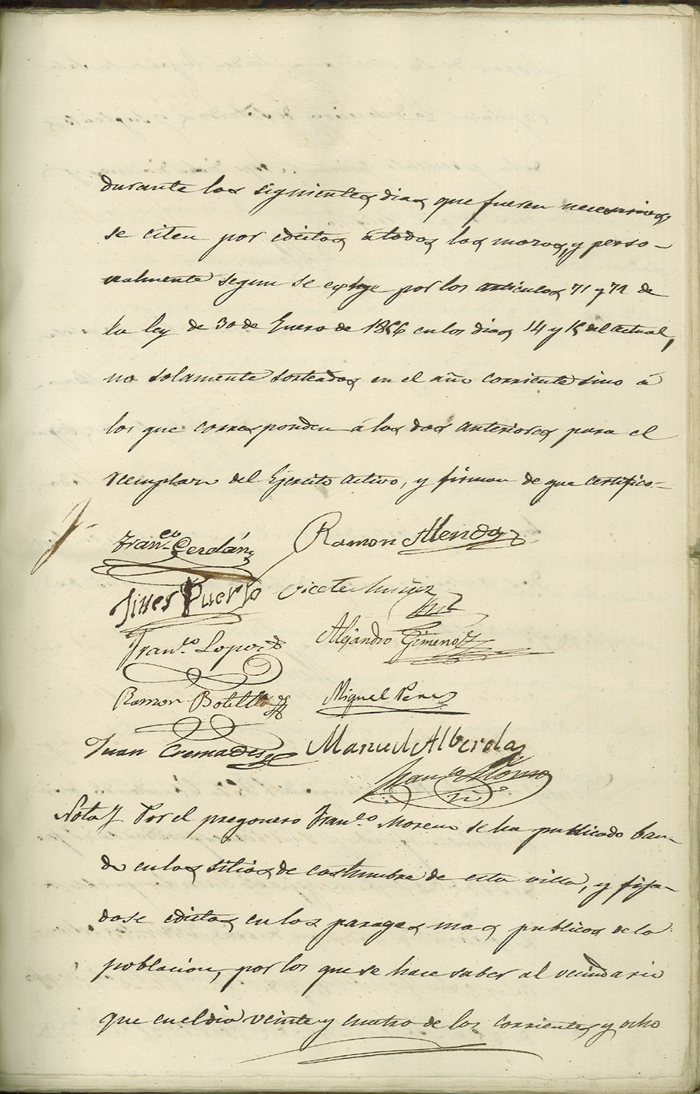 durante los siguientes dias que fueren necesarios
se citen por edictos á todos los mozos, y perso-
nalmente segun se exige por los articulos 71 y 72 de
la ley de 30 de Enero de 1856 en los dias 14 y 15 del actual,
no solamente sorteados en el año corriente sino á
los que corresponden á los dos anteriores para el
reemplazo del Ejercito activo, y firman de que certifico.-
Franco. Cerdán Ramon Alenda
Jines Puerto Vicete Muñoz
Franco. Lopez Alejandro Gimenez
Ramon Botella Miguel Perez
Juan Cremades Manuel Alberola
Franco.
Nota. Por el pregonero Franco. Moreno se ha publicado ban-
do en los sitios de costumbre de esta villa, y fija-
dose edictos en los parages mas publicos de la
poblacion, por los que se hace saber al vecindario
que en el dia veinte y cuatro de los corrientes y ocho